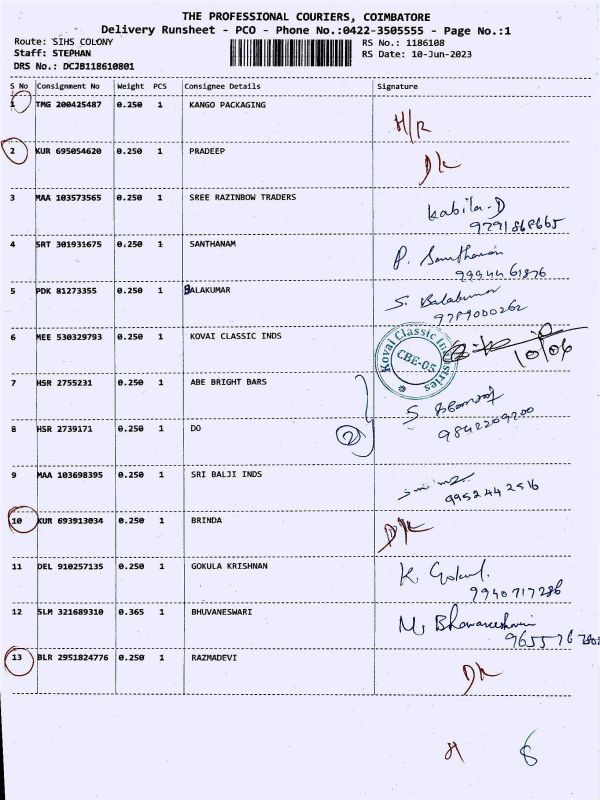 THE PROFESSIONAL COURIERS, COIMBATORE
Delivery Runsheet - PCO - Phone No.:0422-3505555 - Page No.:1
Route: SIHS COLONY RS No.: 1186108
Staff: STEPHAN RS Date: 10-Jun-2023
DRS No.: DCJB118610801
S No Consignment No Weight PCS Consignee Details Signature
1 TMG 200425487 0.250 1 KANGO PACKAGING H/R
2 KUR 695054620 0.250 1 PRADEEP D/L
3 MAA 103573565 0.250 1 SREE RAZINBOW TRADERS Kabila-D
9791868665
4 SRT 301931675 0.250 1 SANTHANAM P. Santhanam
9994461876
5 PDK 81273355 0.250 1 BALAKUMAR S. Balakumar
9789000262
6 MEE 530329793 0.250 1 KOVAI CLASSIC INDS Kovai Classic Industries CBE-05. 10/06
7 HSR 2755231 0.250 1 ABE BRIGHT BARS S
8 HSR 2739171 0.250 1 DO 2 9842209200
9 MAA 103698395 0.250 1 SRI BALJI INDS
9952442516
10 KUR 693913034 0.250 1 BRINDA D/L
11 DEL 910257135 0.250 1 GOKULA KRISHNAN K. Gokul.
9940717286
12 SLM 321689310 0.365 1 BHUVANESWARI M. Bhuvaneshwari
13 BLR 2951824776 0.250 1 RAZMADEVI D/L
8